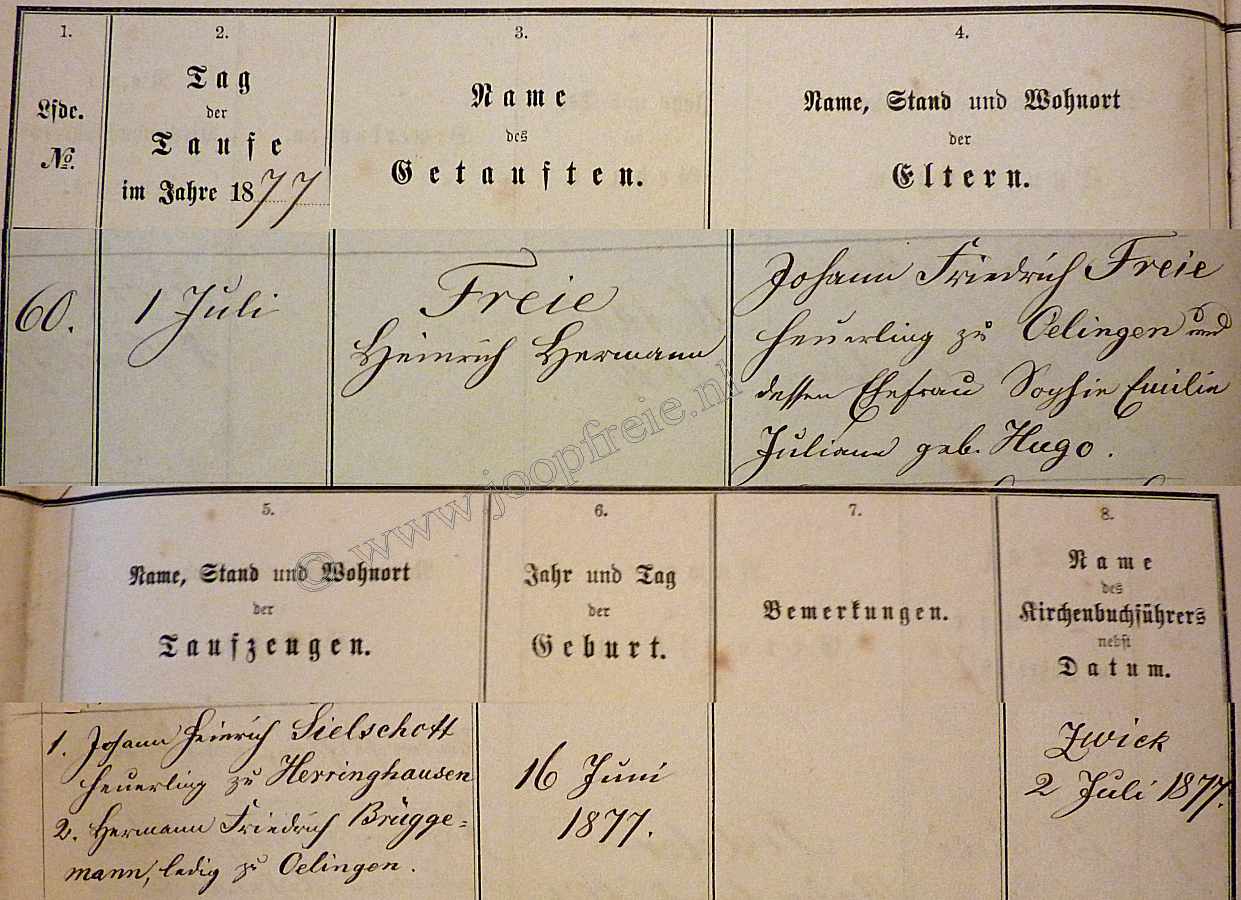 1.
2.
3.
4.
Lfde.
№.
Tag
der
Taufe
im Jahre 1877
Name
des
Getauften.
Name, Stand und Wohnort
der
Eltern.
60.
1 Juli
Freie
Heinrich Hermann
Johann Friedrich Freie
Heuerling zu Oelingen und
dessen Ehefrau Sophie Emilie
Juliane geb. Hugo.
© www.joopfreie.nl
5.
6.
7.
8.
Name, Stand und Wohnort
der
Taufzeugen.
Jahr und Tag
der
Geburt.
Bemerkungen.
Name
des
Kirchenbuchführers
nebst
Datum.
1. Johann Heinrich Sielschott
Heuerling zu Herringhausen
2. Hermann Friedrich Brügge=
mann, ledig zu Oelingen.
16 Juni
1877.
Zwick
2 Juli 1877.